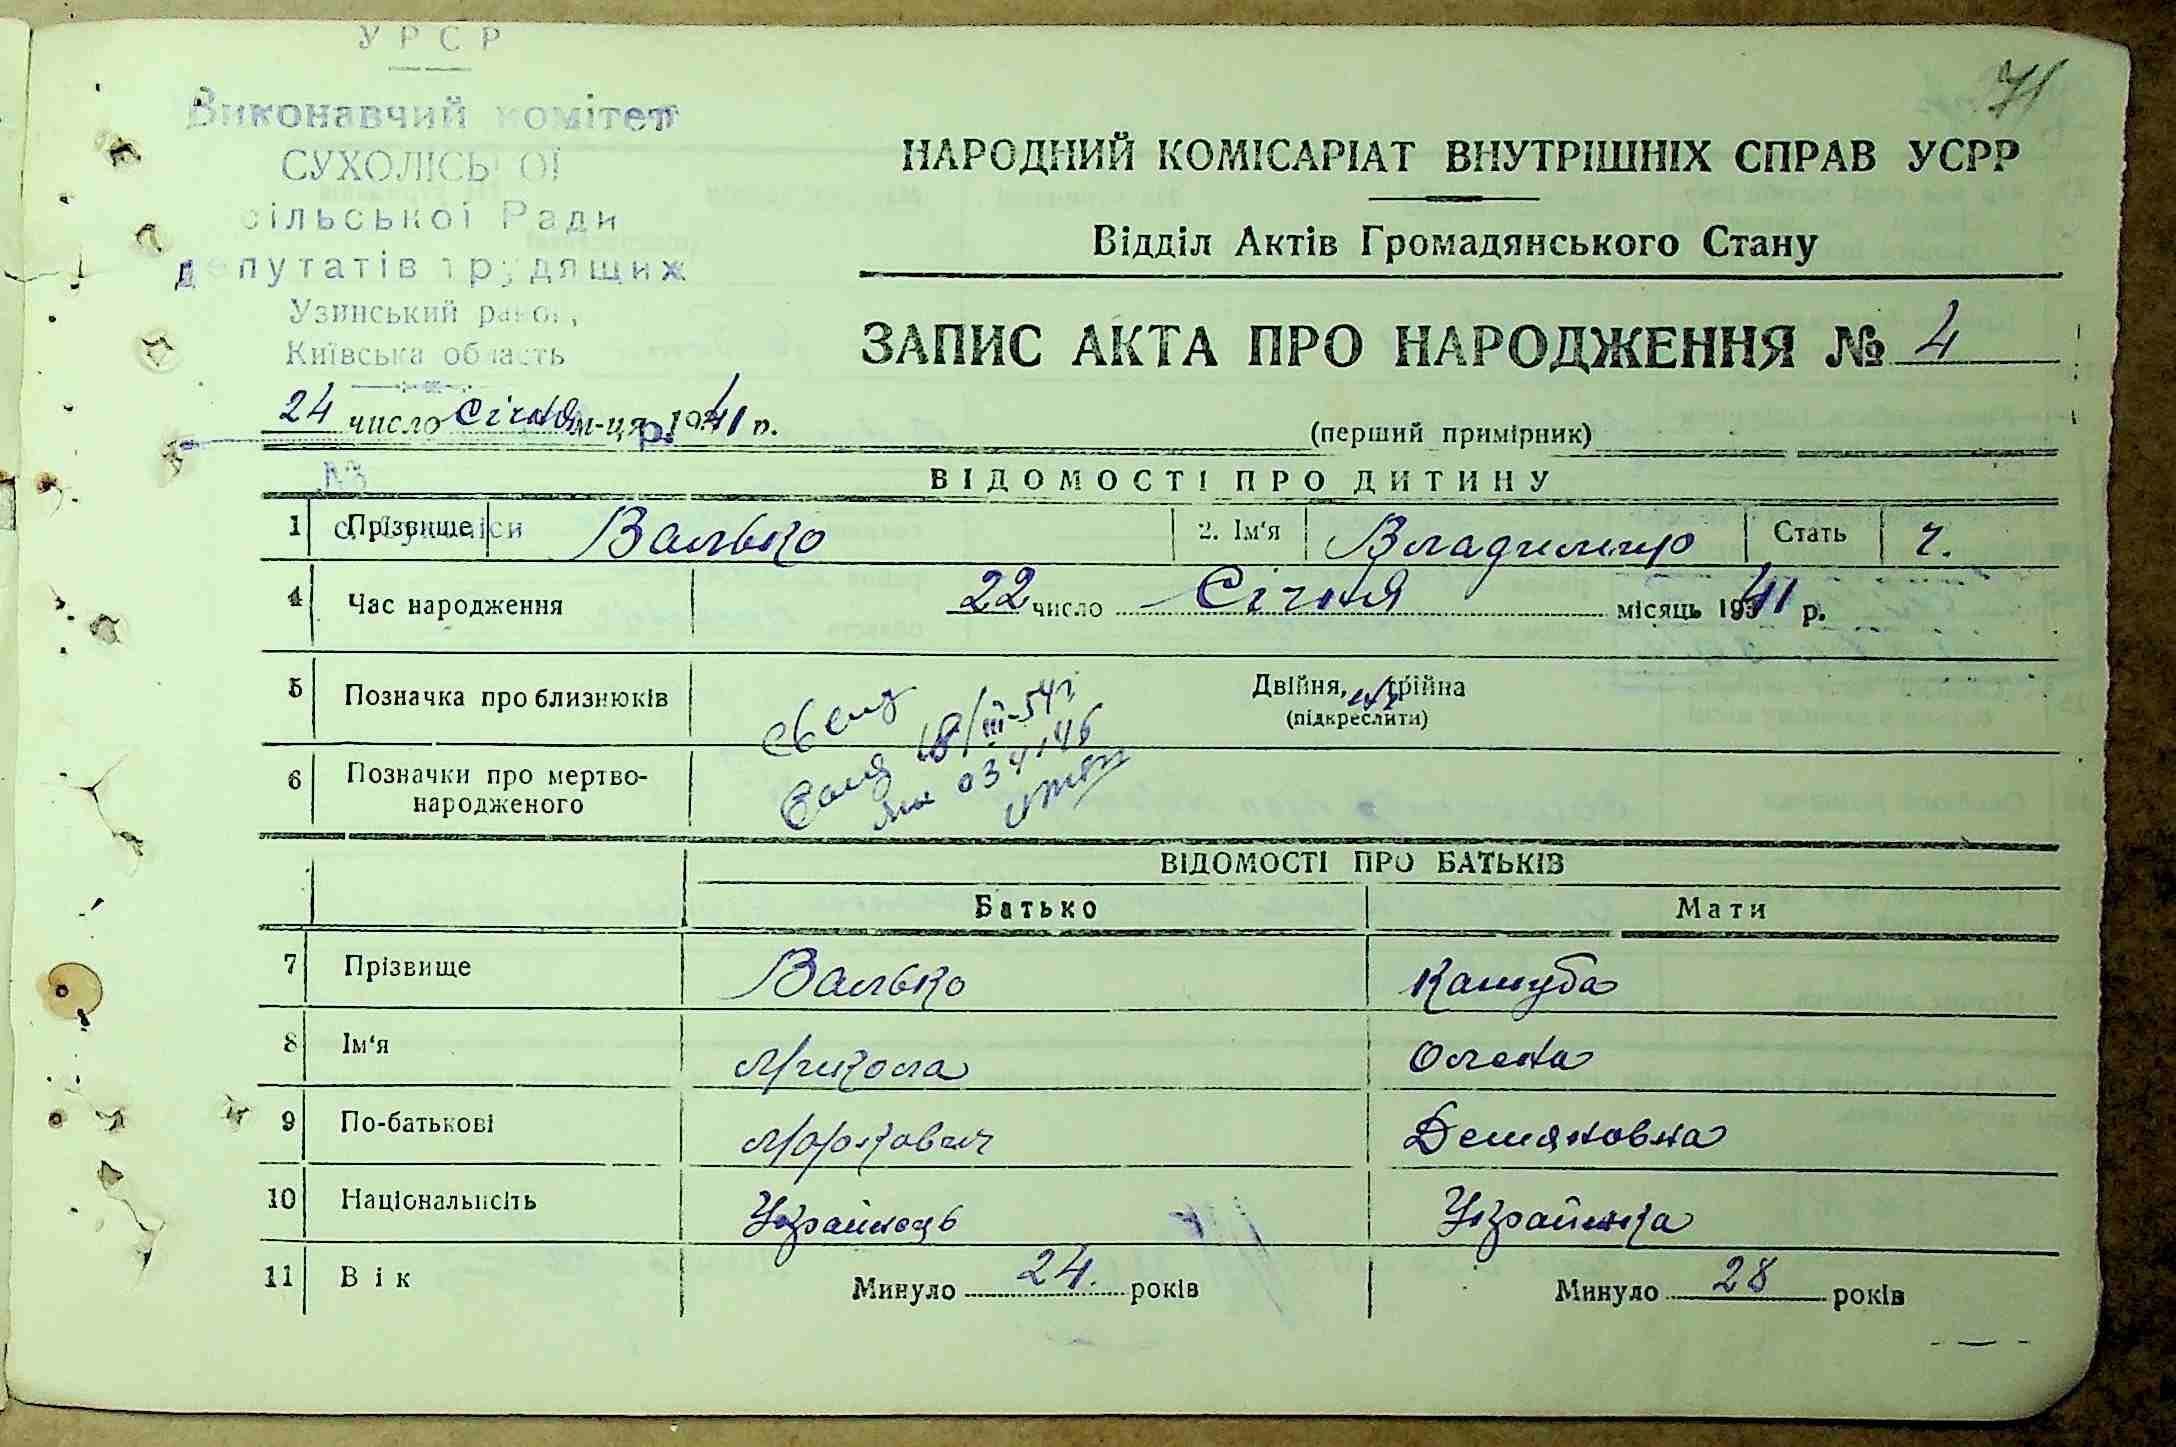 71
УРСР
Виконавчий комітет
СУХОЛІСЬКОЇ
сільської Ради
депутатів трудящих
Узинський район,
Київська область
24 число Січня м-ця 1941 р.
р.
№
с. Сухоліси
НАРОДНИЙ КОМІСАРІАТ ВНУТРІШНІХ СПРАВ УСРР
Відділ Актів Громадянського Стану
ЗАПИС АКТА ПРО НАРОДЖЕННЯ № 4
(перший примірник)
ВІДОМОСТІ ПРО ДИТИНУ
1 Прізвище Валько 2. Ім'я Владимир Стать ч.
4 Час народження 22 число Січня місяць 1941 р.
5 Позначка про близнюків Двійня, трійна
(підкреслити)
18/III-54 г.
6 Позначки про мертво-
народженого
ВІДОМОСТІ ПРО БАТЬКІВ
Батько Мати
7 Прізвище Валько Кашуба
8 Ім'я Микола Олена
9 По-батькові Маркович Демяновна
10 Національність Українець Українка
11 Вік Минуло 24. років Минуло 28 років